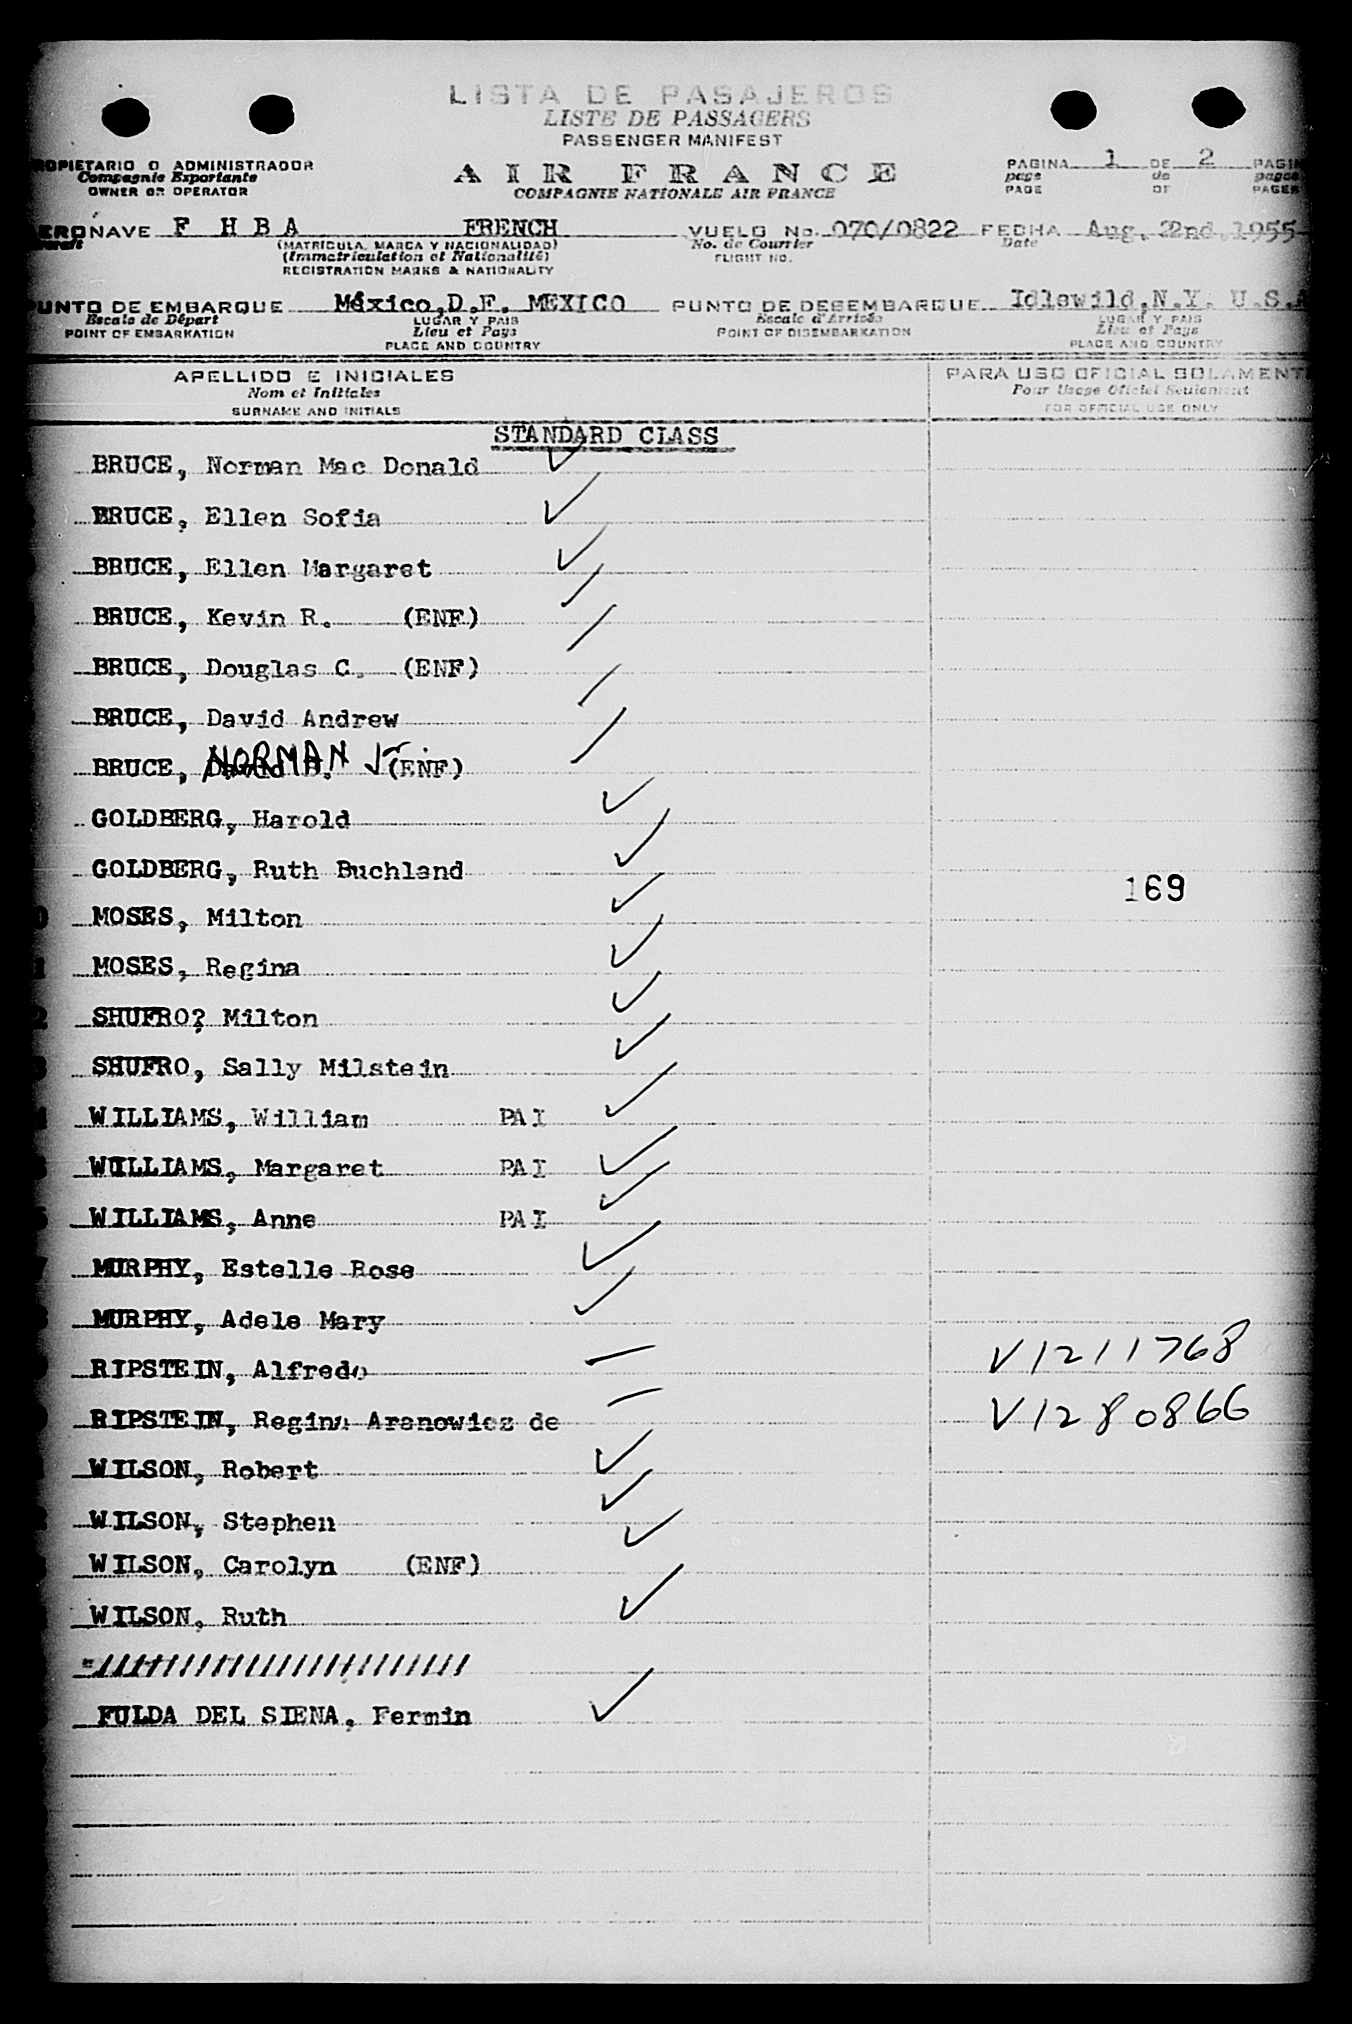 LISTA DE PASAJEROS
LISTE DE PASSAGERS
PASSENGER MANIFEST
ROPIETARIO O ADMINISTRADOR
Compagnie Exportante
OWNER OR OPERATOR
AIR FRANCE
COMPAGNIE NATIONALE AIR FRANCE
PAGINA 1 DE 2 PAGIN
page de pages
PAGE OF PAGES
ERONAVE F H B A FRENCH VUELO No. 070/0822 FECHA Aug. 22nd, 1955
craft (MATRICULA, MARCA Y NACIONALIDAD) No. de Courrier Date
(Immatriculation et Nationalité) FLIGHT NO.
REGISTRATION MARKS & NATIONALITY
PUNTO DE EMBARQUE México,D.F. MEXICO PUNTO DE DESEMBARQUE Idlewild,N.Y. U.S.A
Escale de Départ LUGAR Y PAIS Escale d'Arrivée LUGAR Y PAIS
POINT OF EMBARKATION Lieu et Pays POINT OF DISEMBARKATION Lieu et Pays
PLACE AND COUNTRY PLACE AND COUNTRY
APELLIDO E INICIALES PARA USO OFICIAL SOLAMENT
Nom et Initiales Pour Usage Officiel Seulement
SURNAME AND INITIALS FOR OFFICIAL USE ONLY
STANDARD CLASS
BRUCE, Norman Mac Donald
BRUCE, Ellen Sofia
BRUCE, Ellen Margaret
BRUCE, Kevin R. (ENF)
BRUCE, Douglas C. (ENF)
BRUCE, David Andrew
BRUCE, NORMAN Jr. (ENF)
GOLDBERG, Harold
GOLDBERG, Ruth Buchland
169
MOSES, Milton
MOSES, Regina
SHUFRO? Milton
SHUFRO, Sally Milstein
WILLIAMS, William PAI
WILLIAMS, Margaret PAI
WILLIAMS, Anne PAI
MURPHY, Estelle Rose
MURPHY, Adele Mary
RIPSTEIN, Alfredo V1211768
RIPSTEIN, Regina Aranowicz de V1280866
WILSON, Robert
WILSON, Stephen
WILSON, Carolyn (ENF)
WILSON, Ruth
"////////////////////////
FULDA DEL SIENA, Fermin